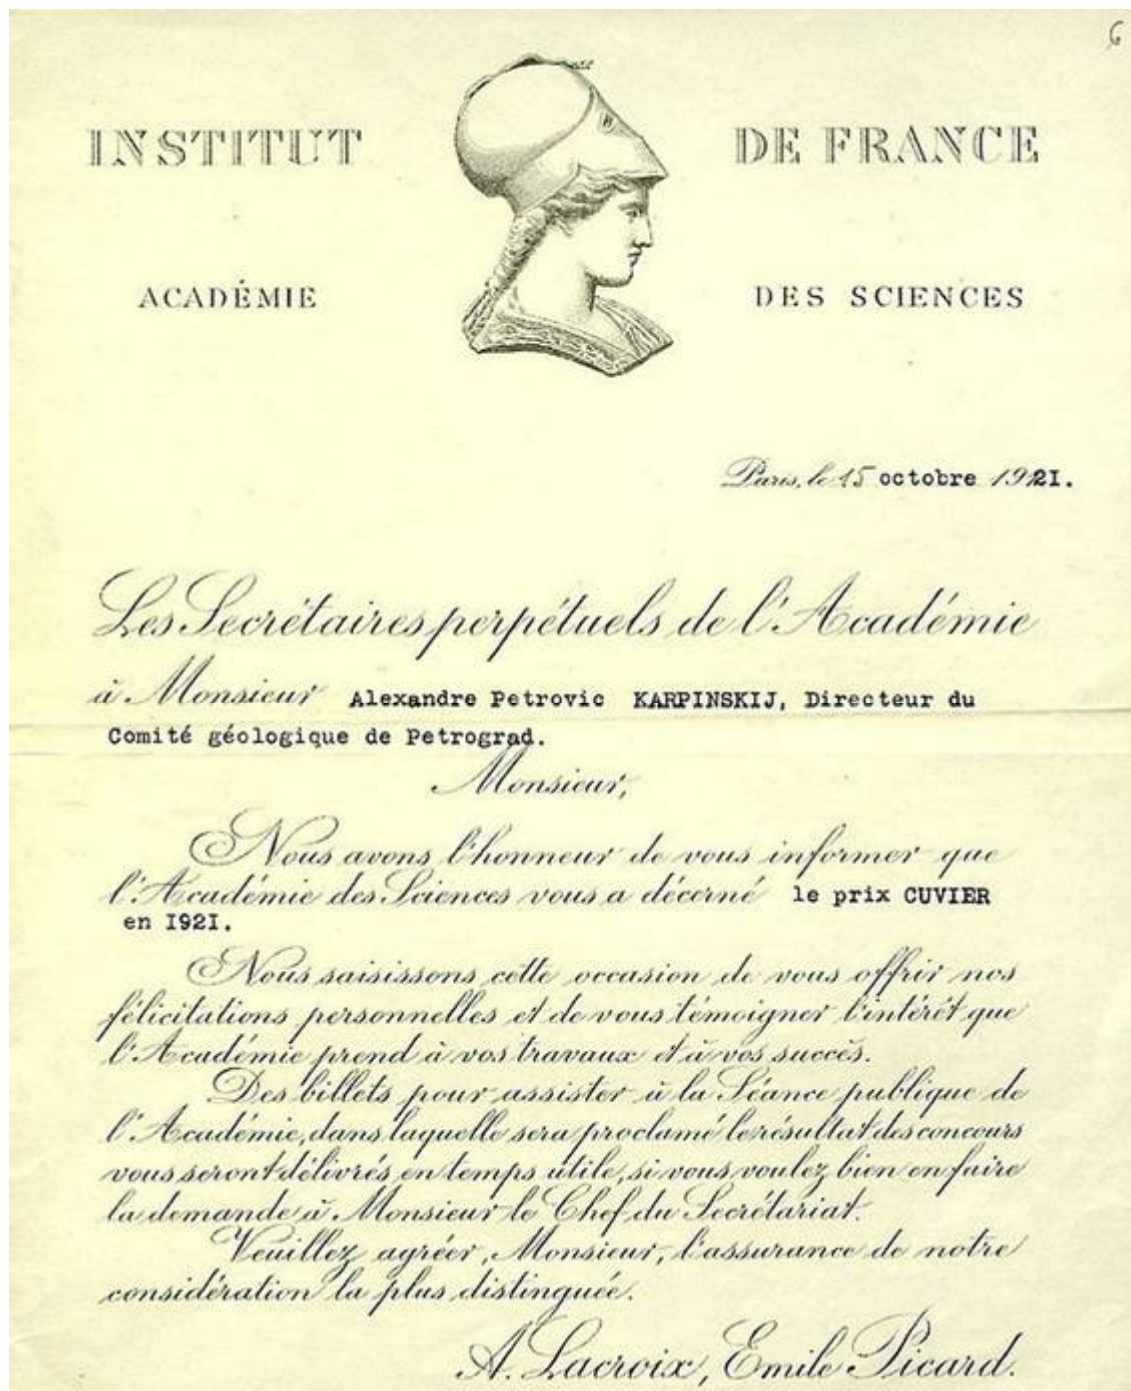 6
INSTITUT DE FRANCE
ACADÉMIE DES SCIENCES
Paris, le 15 octobre 1921.
Les Secrétaires perpétuels de l'Académie
à Monsieur Alexandre Petrovic KARPINSKIJ, Directeur du
Comité géologique de Petrograd.
Monsieur,
Nous avons l'honneur de vous informer que
l'Académie des Sciences vous a décerné le prix CUVIER
en I92I.
Nous saisissons cette occasion de vous offrir nos
félicitations personnelles et de vous témoigner l'intérêt que
l'Académie prend à vos travaux et à vos succès.
Des billets pour assister à la Séance publique de
l'Académie, dans laquelle sera proclamé le résultat des concours
vous seront délivrés en temps utile, si vous voulez bien en faire
la demande à Monsieur le Chef du Secrétariat.
Veuillez agréer, Monsieur, l'assurance de notre
considération la plus distinguée.
A. Lacroix, Emile Picard.